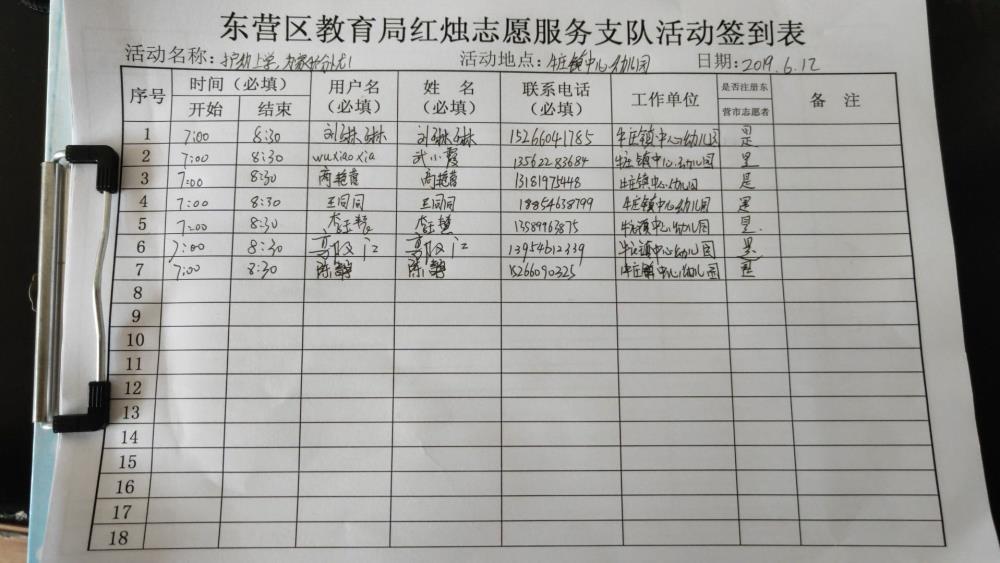 东营区教育局红烛志愿服务支队活动签到表
活动名称：护幼上学 活动地点：牛庄镇中心幼儿园 日期：2019.6.12
序号 时间（必填） 用户名（必填） 姓名（必填） 联系电话（必填） 工作单位 是否注册东营市志愿者 备注
开始 结束
1 7:00 8:30 刘琳琳 刘琳琳 15266041785 牛庄镇中心幼儿园 是
2 7:00 8:30 wuxiaoxia 武小霞 13562283684 牛庄镇中心幼儿园 是
3 7:00 8:30 高艳霞 高艳霞 13181975448 牛庄镇中心幼儿园 是
4 7:00 8:30 王同同 王同同 18854638799 牛庄镇中心幼儿园 是
5 7:00 8:30 13589163875 牛庄镇中心幼儿园 是
6 7:00 8:30 13954612339 牛庄镇中心幼儿园 是
7 7:00 8:30 15266090325 牛庄镇中心幼儿园 是
8
9
10
11
12
13
14
15
16
17
18